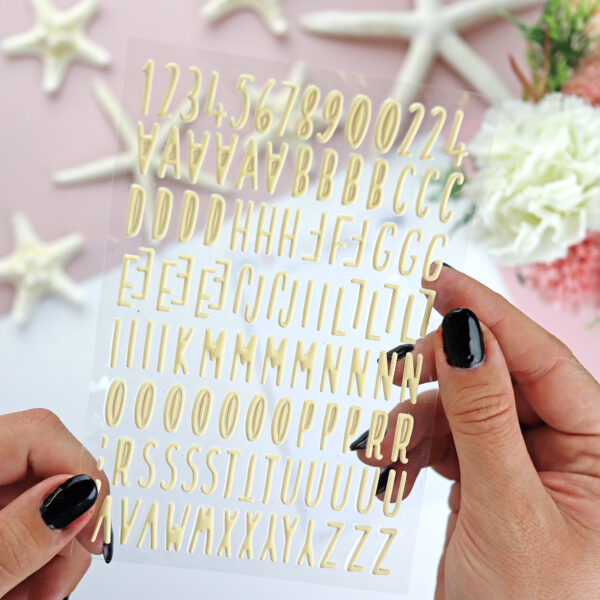 12345678900224
AAAAAABBBBCCC
DDDDHHHFFFGGG
EEEEEEJJJIILLLL
IIIIKMMMMNNN
OOOOOOOPPPRR
RSSSSTTIUUUUU
VVVWWXXXYYZZZ